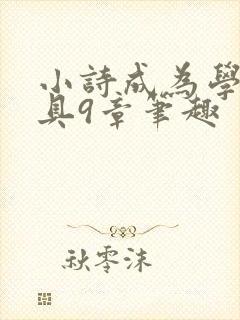 小詩成為學
具9章筆趣
秋零沫